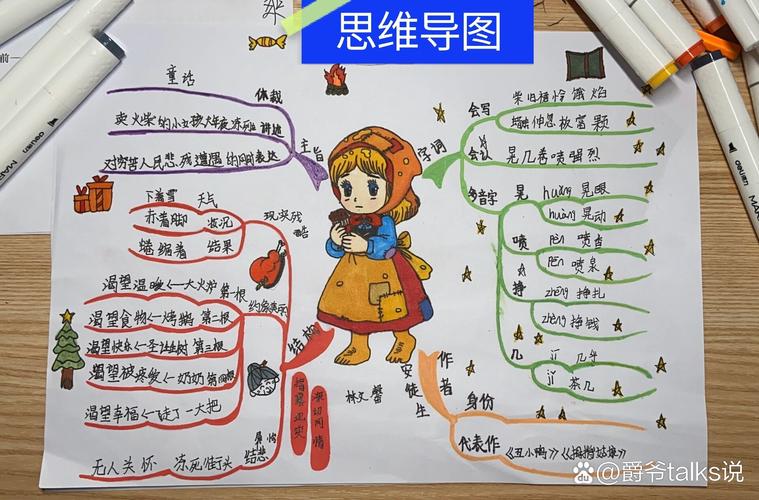 思维导图
童话
体裁
卖火柴的小女孩大年夜冻死 讲述
对穷苦人民悲惨遭遇的同情表达
主旨
下着雪 天气
赤着脚 状况
蜷缩着 结果
现实残酷
渴望温暖←大火炉 第一根
渴望食物←烤鹅 第二根
渴望快乐←圣诞树 第三根
渴望被疼爱←奶奶 第四根
渴望幸福←飞走了 一大把
幻象美丽
结构
无人关怀 冻死街头
结悲
字词
会写
柴旧裙怜饿焰
蜷伸忽板富颗
会认
晃几卷喷强烈
多音字
晃
huǎng 晃眼
huàng 晃动
喷
pèn 喷香
pēn 喷泉
挣
zhēng 挣扎
zhèng 挣钱
几
jī 几乎
jī 茶几
作者
安徒生
身份
代表作
《丑小鸭》《拇指姑娘》
deli
爵爷talks说